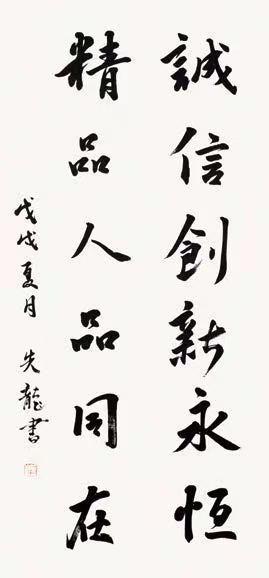 誠信創新永恆
精品人品同在
戊戌夏月 先龍書